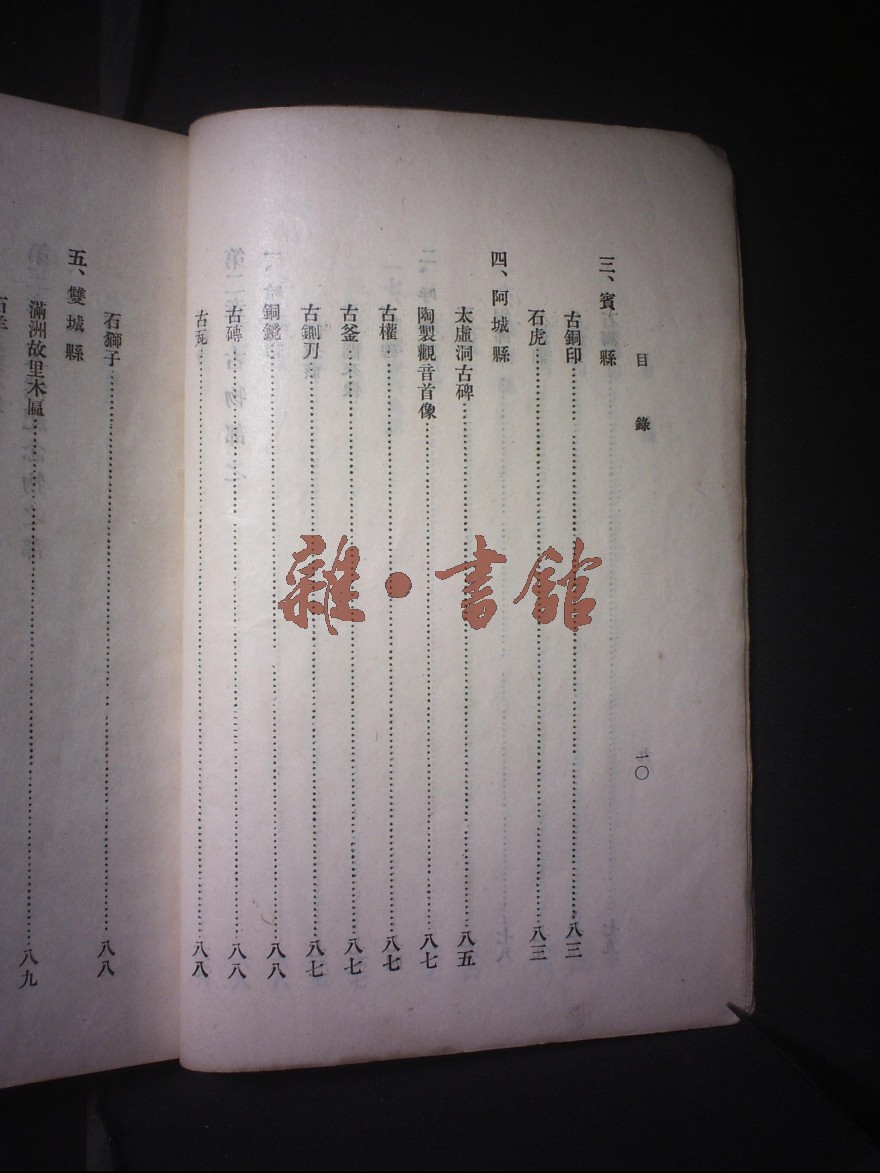 目錄
一〇
三、賓縣
古銅印……八三
石虎……八三
四、阿城縣
太虛洞古碑……八五
陶製觀音首像……八七
古權……八七
古釜……八七
古鍘刀……八七
銅鏡……八八
古磚……八八
古瓦……八八
石獅子……八八
五、雙城縣
滿洲故里木匾……八九
雜·書館